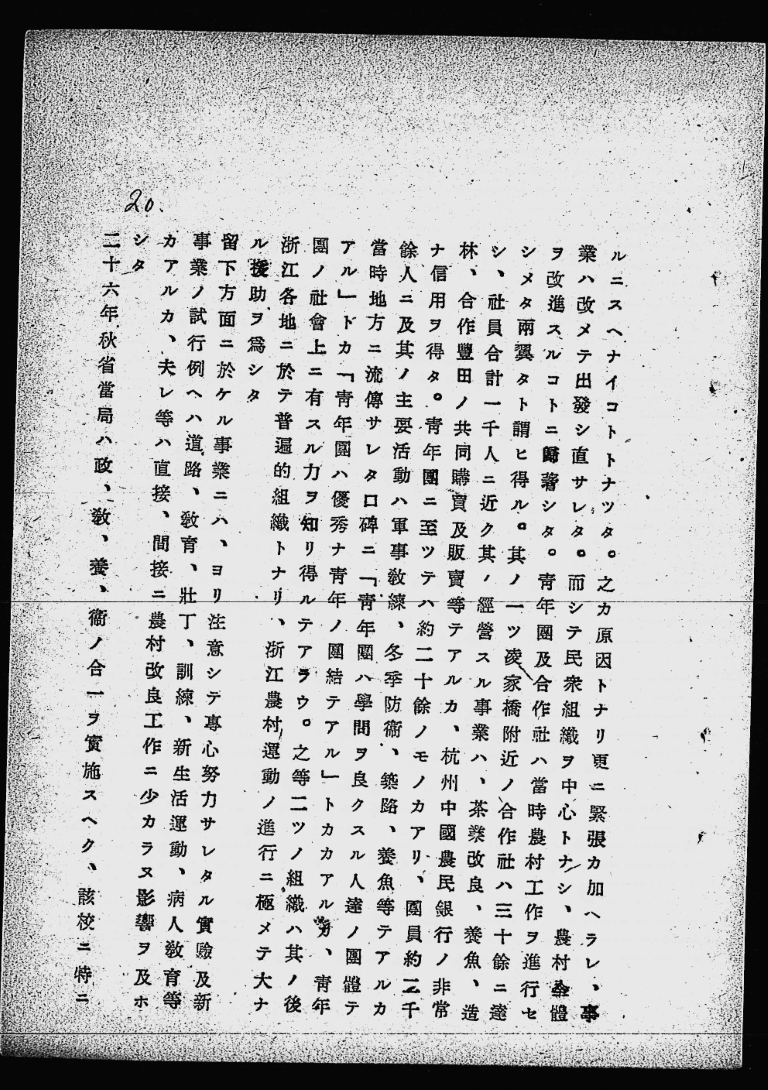 20.
ルニスヘナイコトトナツタ。之カ原因トナリ更ニ緊張カ加ヘラレ、事
業ハ改メテ出發シ直サレタ。而シテ民衆組織ヲ中心トナシ、農村全體
ヲ改進スルコトニ歸著シタ。青年團及合作社ハ當時農村工作ヲ進行セ
シメタ兩翼タト謂ヒ得ル。其ノ一ツ凌家橋附近ノ合作社ハ三十餘ニ達
シ、社員合計一千人ニ近ク其ノ經營スル事業ハ、茶業改良、養魚、造
林、合作豐田ノ共同購買及販賣等テアルカ、杭州中國農民銀行ノ非常
ナ信用ヲ得タ。青年團ニ至ツテハ約二十餘ノモノカアリ、團員約二千
餘人ニ及其ノ主要活動ハ軍事敎練、冬季防衞、築路、養魚等テアルカ
當時地方ニ流傳サレタ口碑ニ「青年團ハ學問ヲ良クスル人達ノ團體テ
アル」トカ「青年團ハ優秀ナ青年ノ團結テアル」トカカアルカ、青年
團ノ社會上ニ有スル力ヲ知リ得ルテアラウ。之等二ツノ組織ハ其ノ後
浙江各地ニ於テ普遍的組織トナリ、浙江農村運動ノ進行ニ極メテ大ナ
ル援助ヲ爲シタ
留下方面ニ於ケル事業ニハ、ヨリ注意シテ專心努力サレタル實驗及新
事業ノ試行例ヘハ道路、敎育、壯丁、訓練、新生活運動、病人敎育等
カアルカ、夫レ等ハ直接、間接ニ農村改良工作ニ少カラヌ影響ヲ及ホ
シタ
二十六年秋省當局ハ政、敎、養、衞ノ合一ヲ實施スヘク、該校ニ特ニ